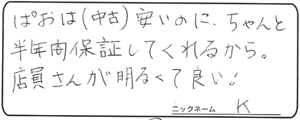 ぱおは(中古)安いのに、ちゃんと
半年間保証してくれるから。
店員さんが明るくて良い!
ニックネーム K